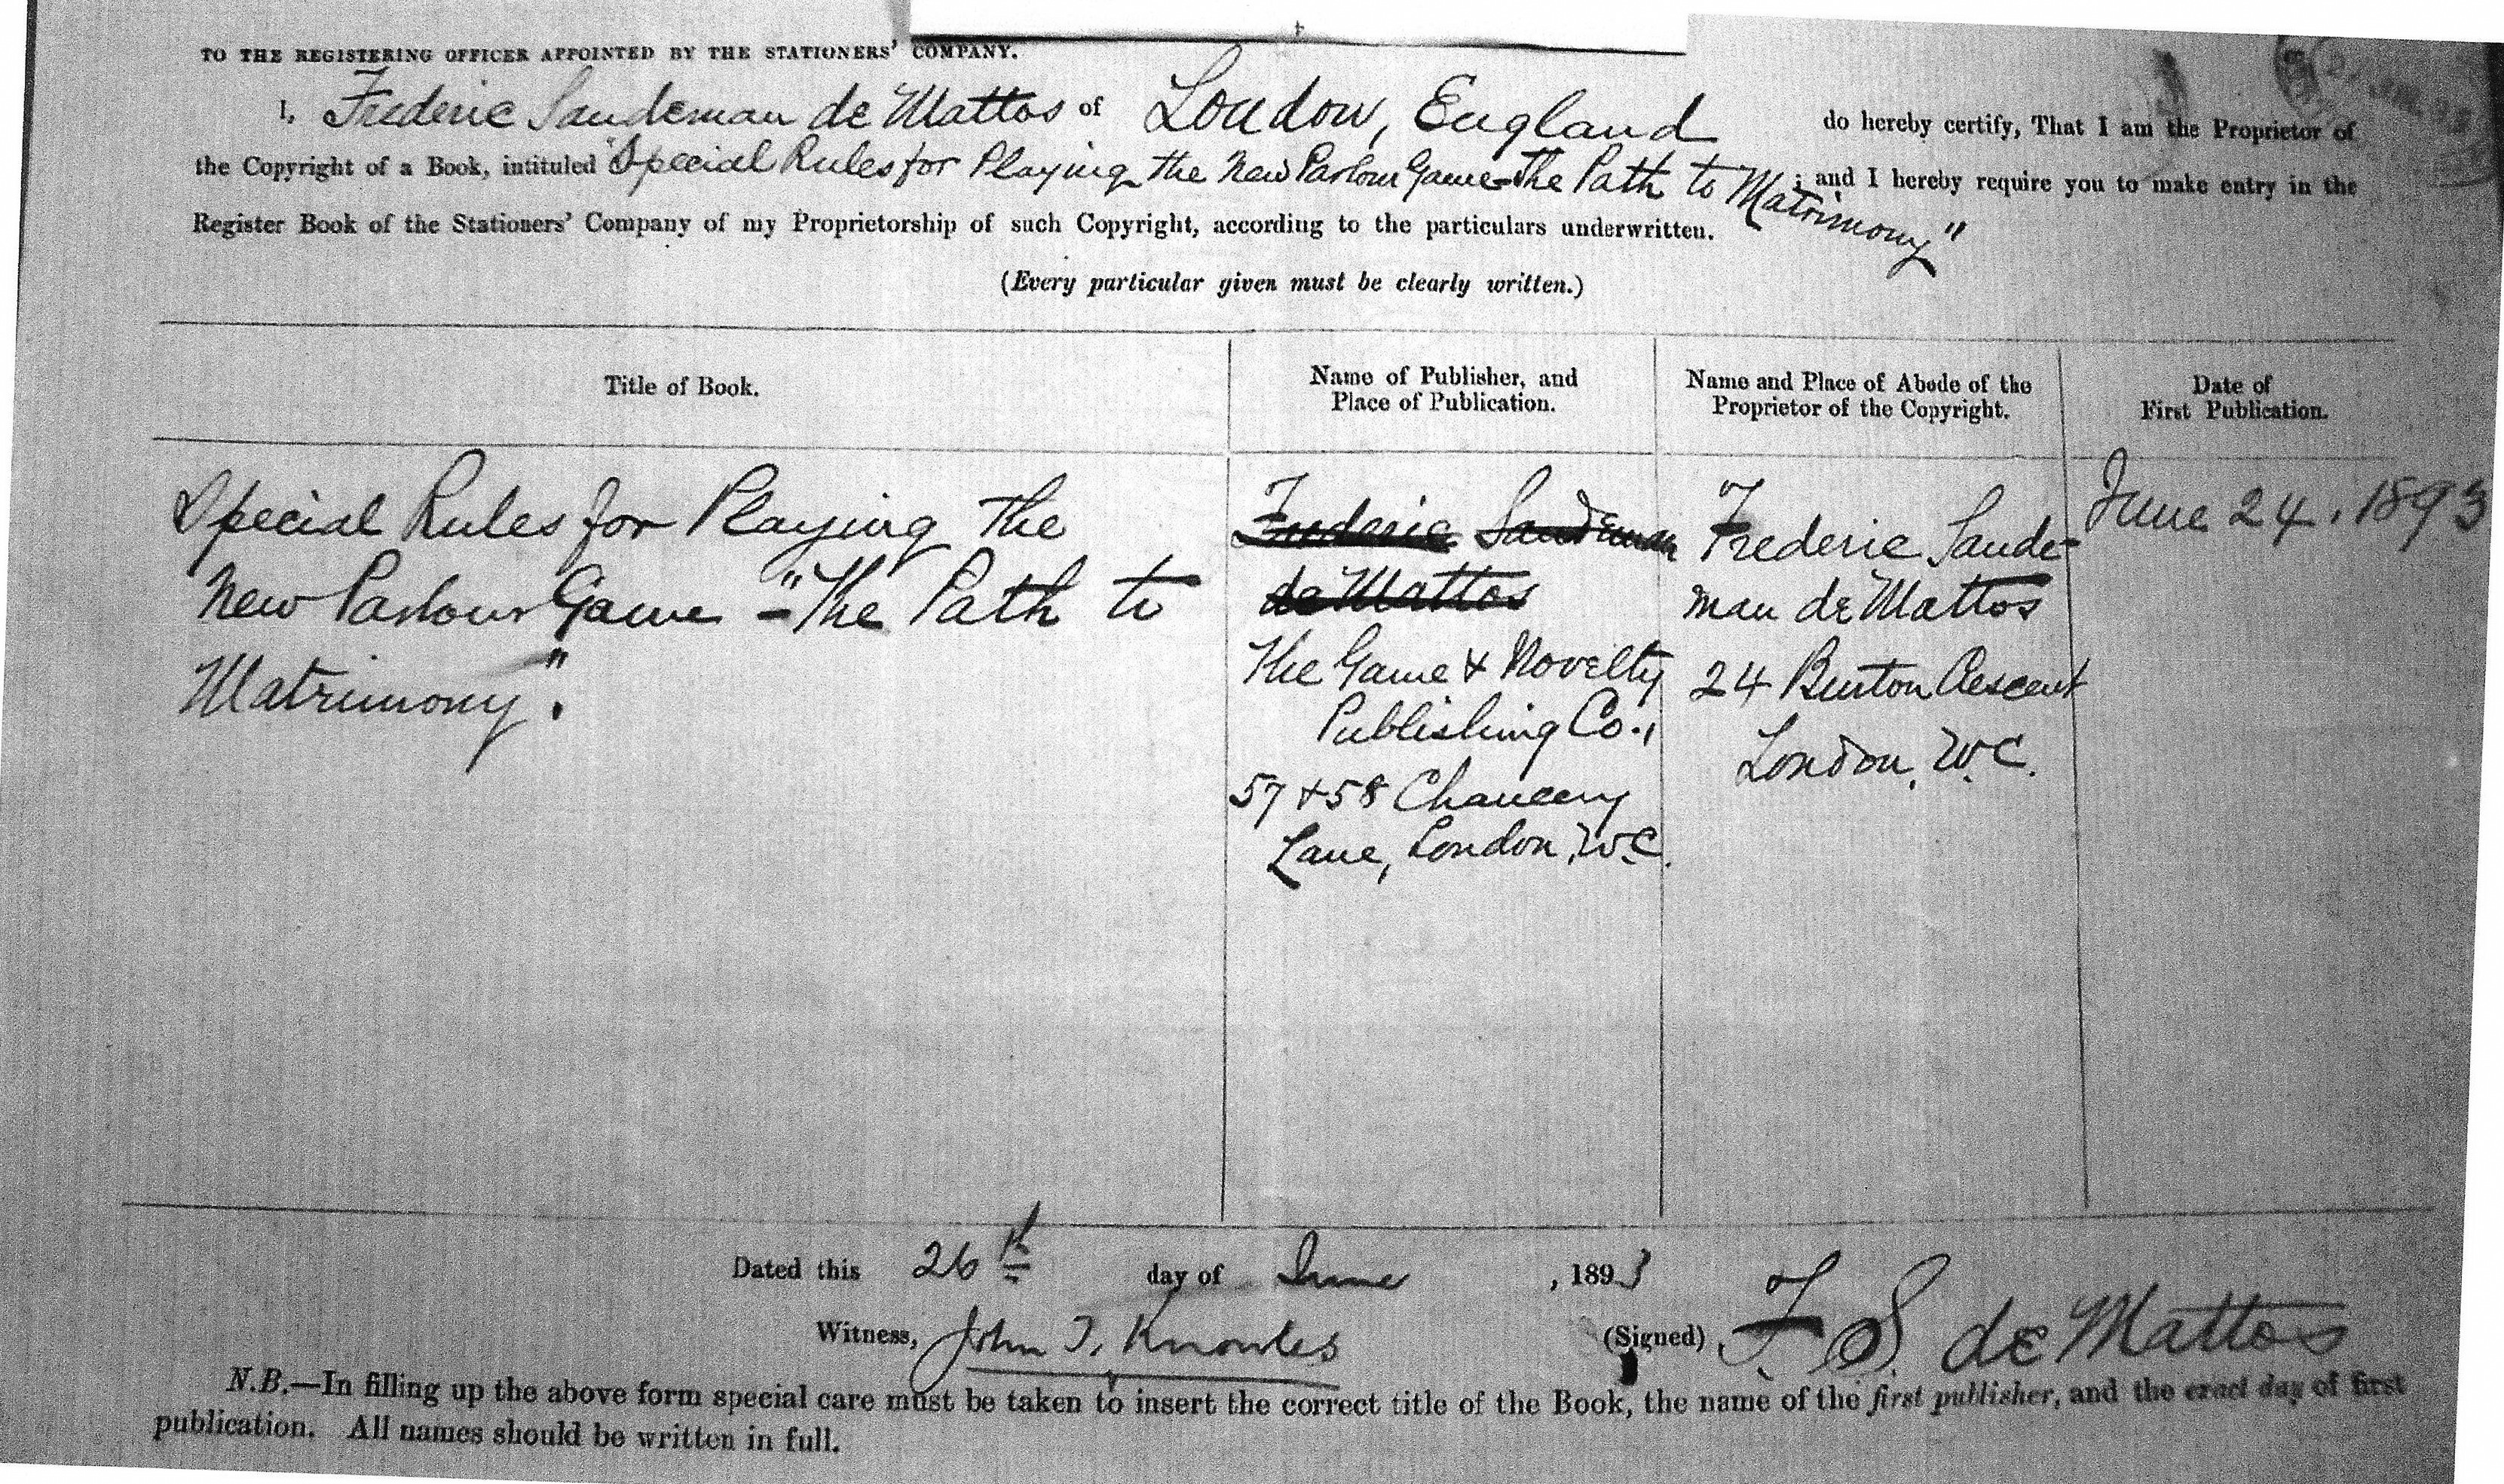 TO THE REGISTERING OFFICER APPOINTED BY THE STATIONERS' COMPANY.
I, Frederic Sandeman de Mattos of London, England do hereby certify, That I am the Proprietor of
the Copyright of a Book, intituled "Special Rules for Playing the New Parlour Game - The Path to Matrimony" ; and I hereby require you to make entry in the
Register Book of the Stationers' Company of my Proprietorship of such Copyright, according to the particulars underwritten.
(Every particular given must be clearly written.)
Title of Book.
Name of Publisher, and
Place of Publication.
Name and Place of Abode of the
Proprietor of the Copyright.
Date of
First Publication.
Special Rules for Playing The
New Parlour Game - "The Path to
Matrimony".
Frederic Sandeman
de Mattos
The Game & Novelty
Publishing Co.,
57 & 58 Chancery
Lane, London, W.C.
Frederic Sande-
man de Mattos
24 Burton Crescent
London, W.C.
June 24, 1893
Dated this 26th day of June, 1893
Witness, John T. Knowles (Signed) F. S. de Mattos
N.B.—In filling up the above form special care must be taken to insert the correct title of the Book, the name of the first publisher, and the exact day of first
publication. All names should be written in full.